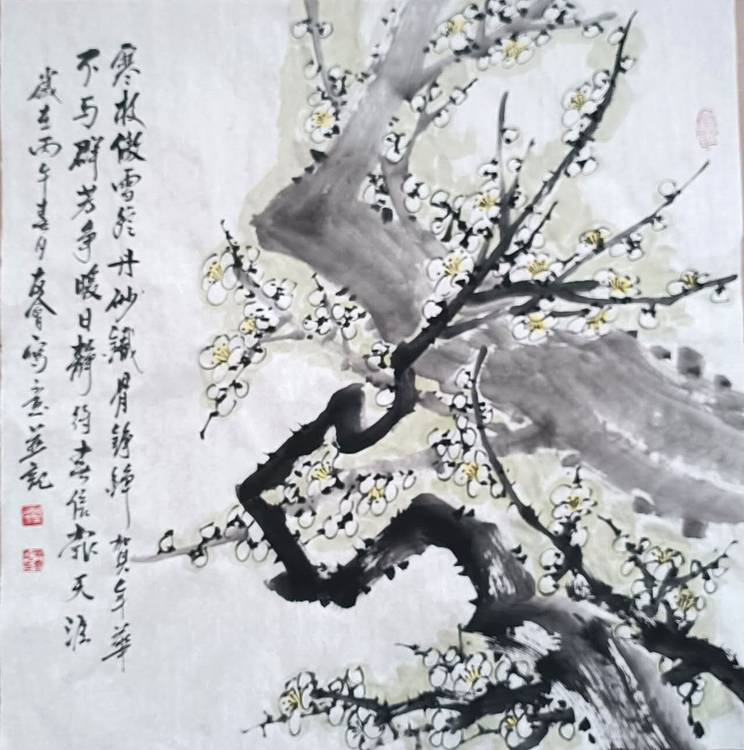 寒枝傲雪綻丹砂鐵骨錚錚賀年華
不与群芳争暖日靜待春信報天涯
歲在丙午春月友會寫意並記